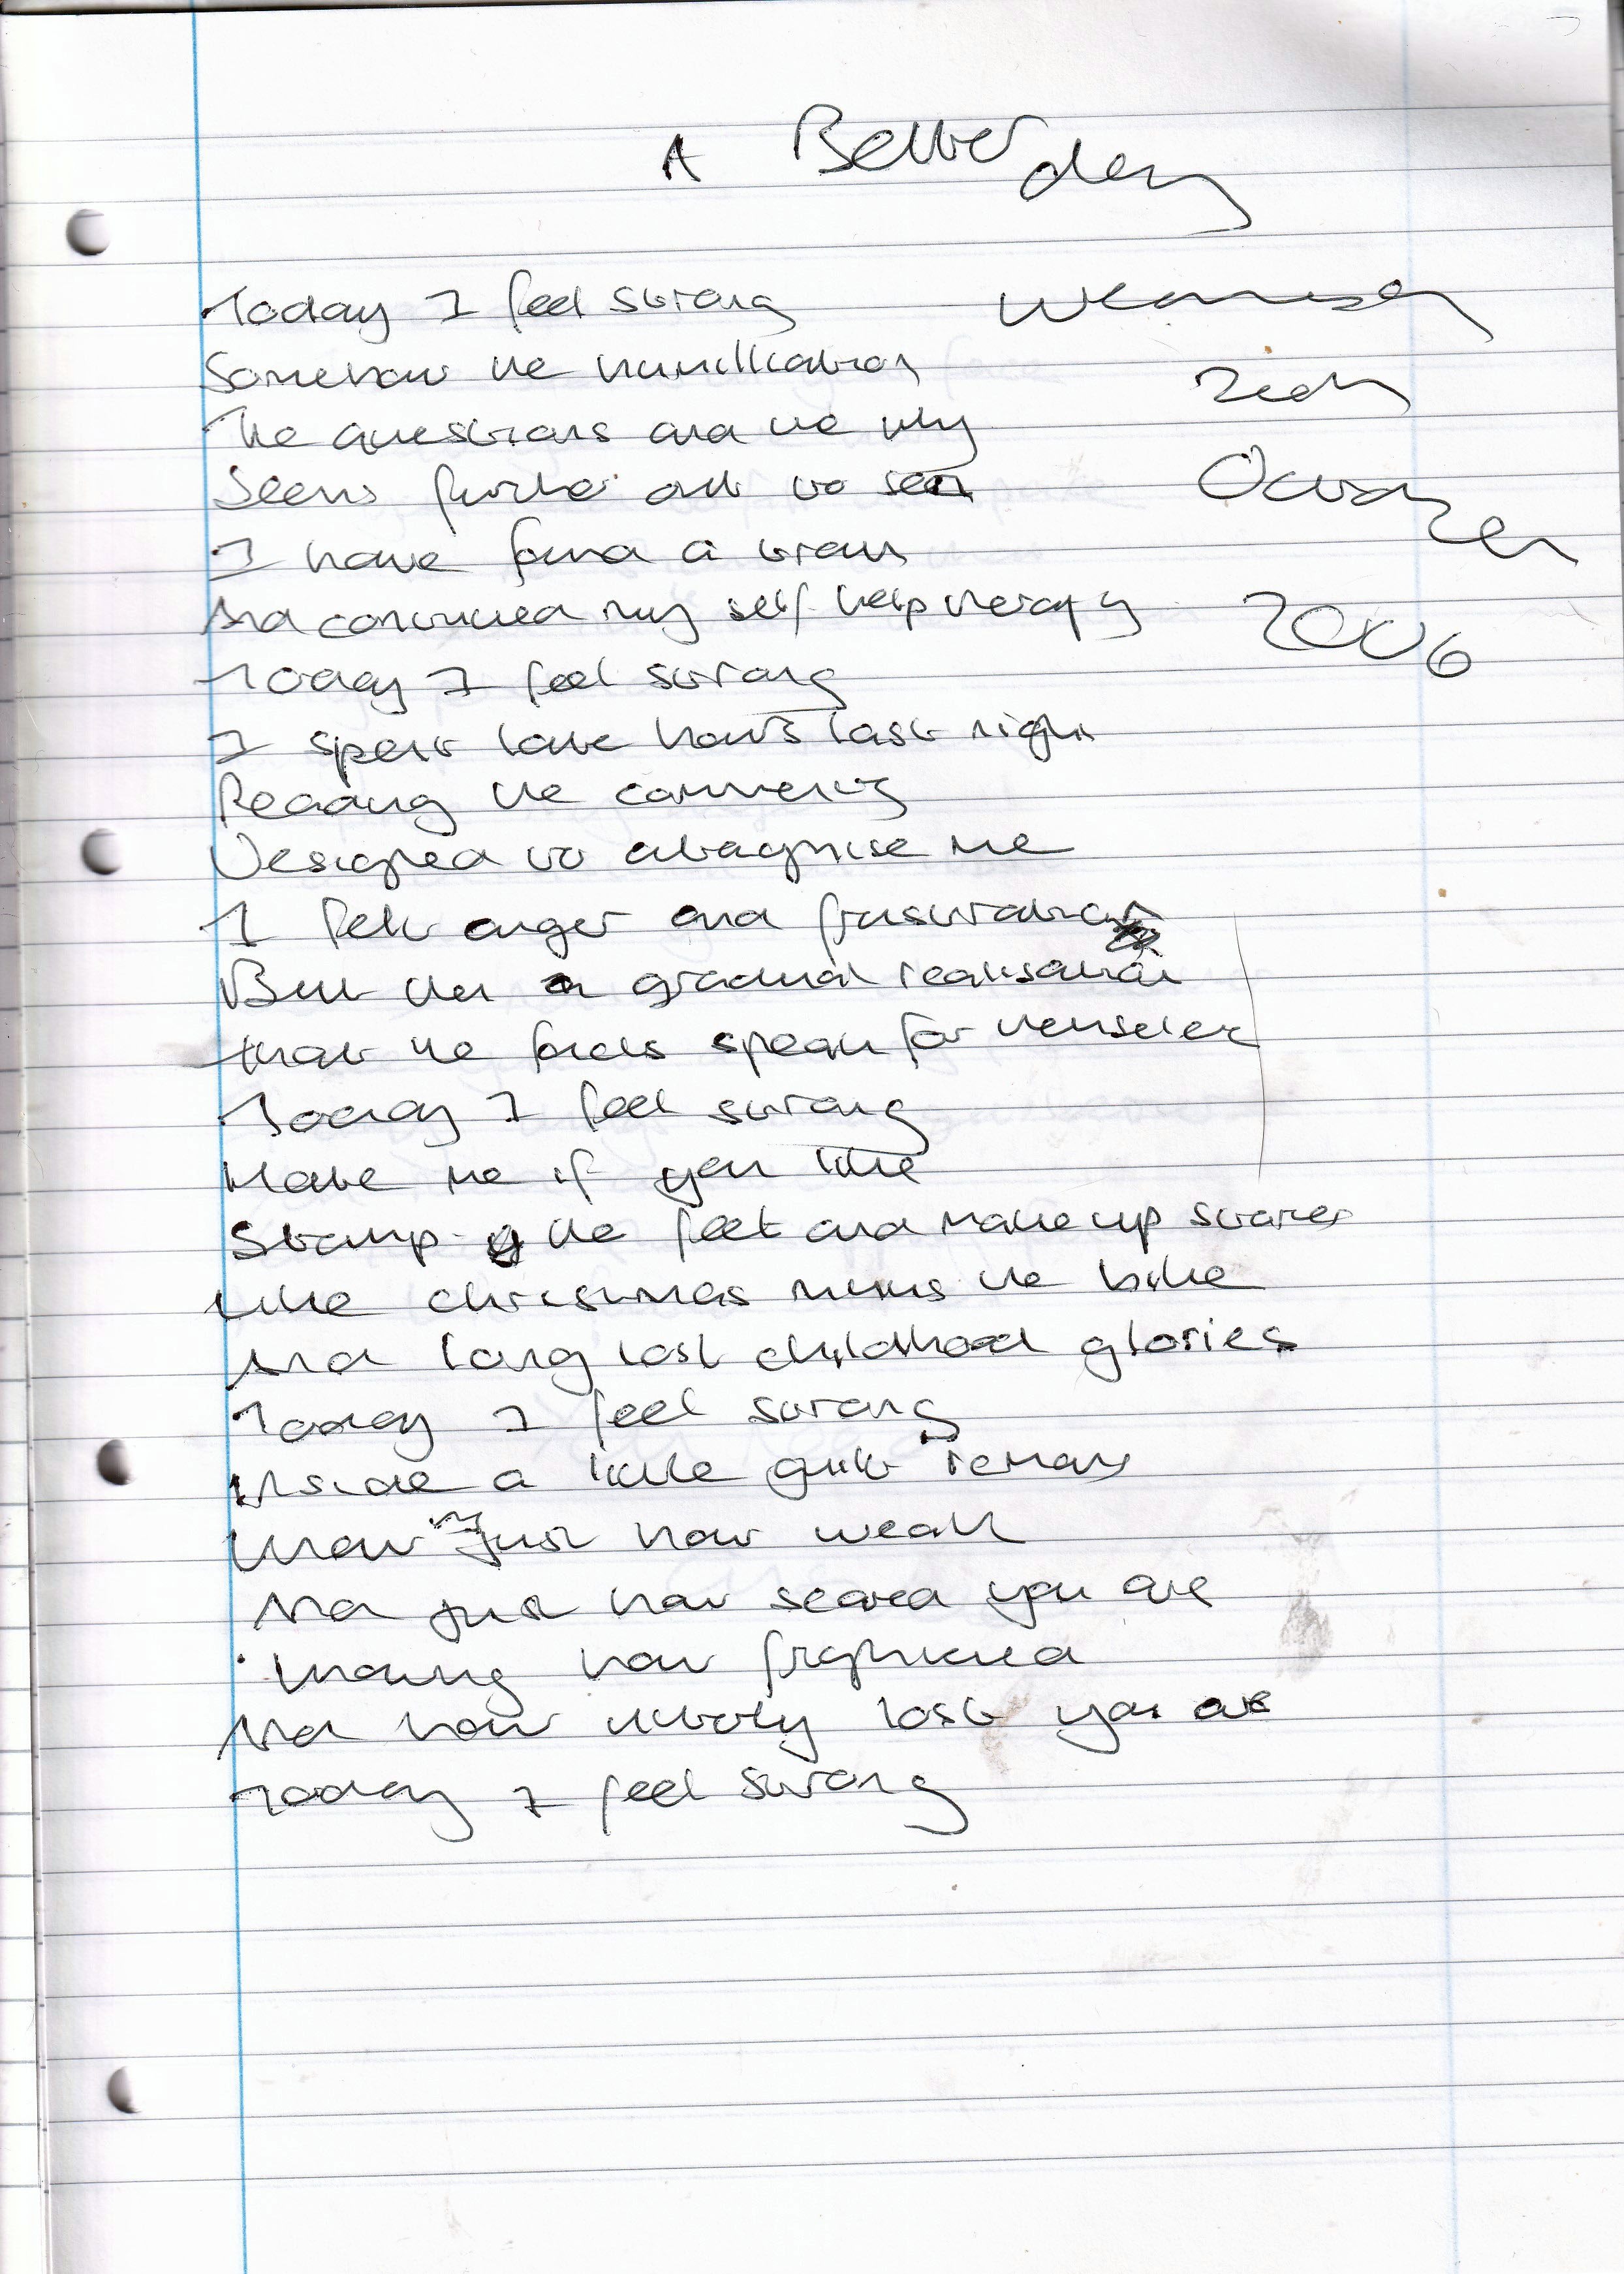 A Better day
Today I feel strong
Wednesday
Somehow the humilliation
The questions and the why
Seems further out to sea
October
I have found a
And continued my self help therapy
2006
Today I feel strong
I spent late hours last night
Reading the comments
Designed to antagonise me
I felt anger and frustration
But then a gradual realisation
that the facts speak for themselves
Today I feel strong
Hate me if you like
Stamp the feet and make up stories
like christmas minus the bike
And long lost childhood glories
Today I feel strong
Inside a little guilt remains
Know just how weak
And just how scared you are
Knowing how frightened
And how utterly lost you are
Today I feel strong